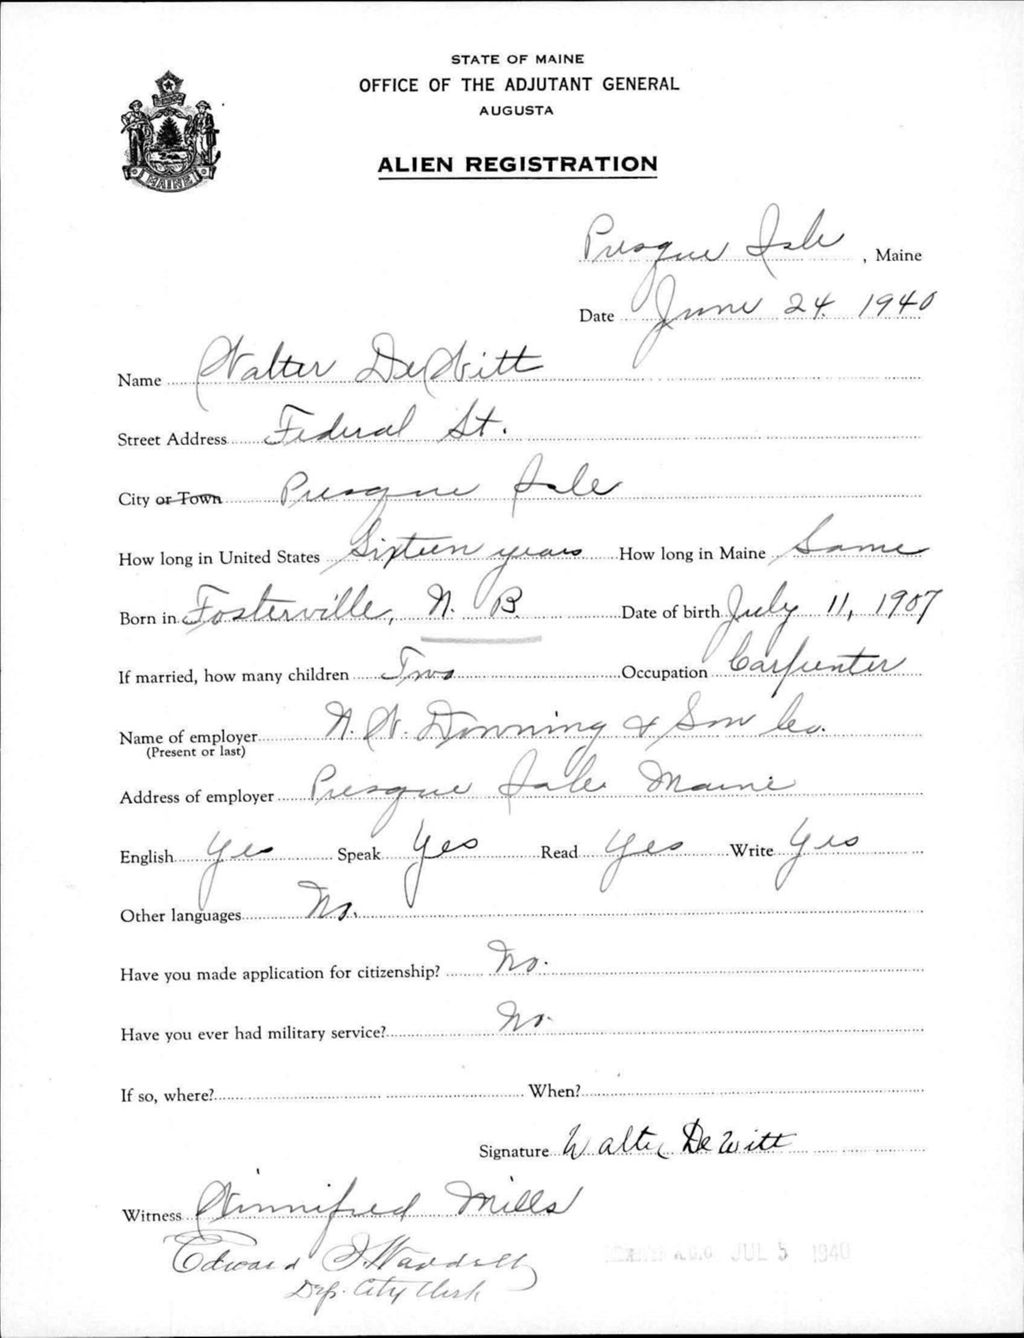 STATE OF MAINE
OFFICE OF THE ADJUTANT GENERAL
AUGUSTA
ALIEN REGISTRATION
MAINE
Presque Isle, Maine
Date June 24. 1940
Name Walter DeWitt
Street Address Federal St.
City or Town Presque Isle
How long in United States Sixteen years How long in Maine Same
Born in Fosterville, N. B. Date of birth July 11, 1907
If married, how many children Two Occupation Carpenter
Name of employer N. W. Downing & Son Co.
(Present or last)
Address of employer Presque Isle Maine
English Yes Speak Yes Read Yes Write Yes
Other languages No.
Have you made application for citizenship? No.
Have you ever had military service? No.
If so, where? When?
Signature Walter DeWitt
Witness Winnifred Mills
Edward J. Waddell
Dep. City Clerk
A.G.O. JUL 5 1940